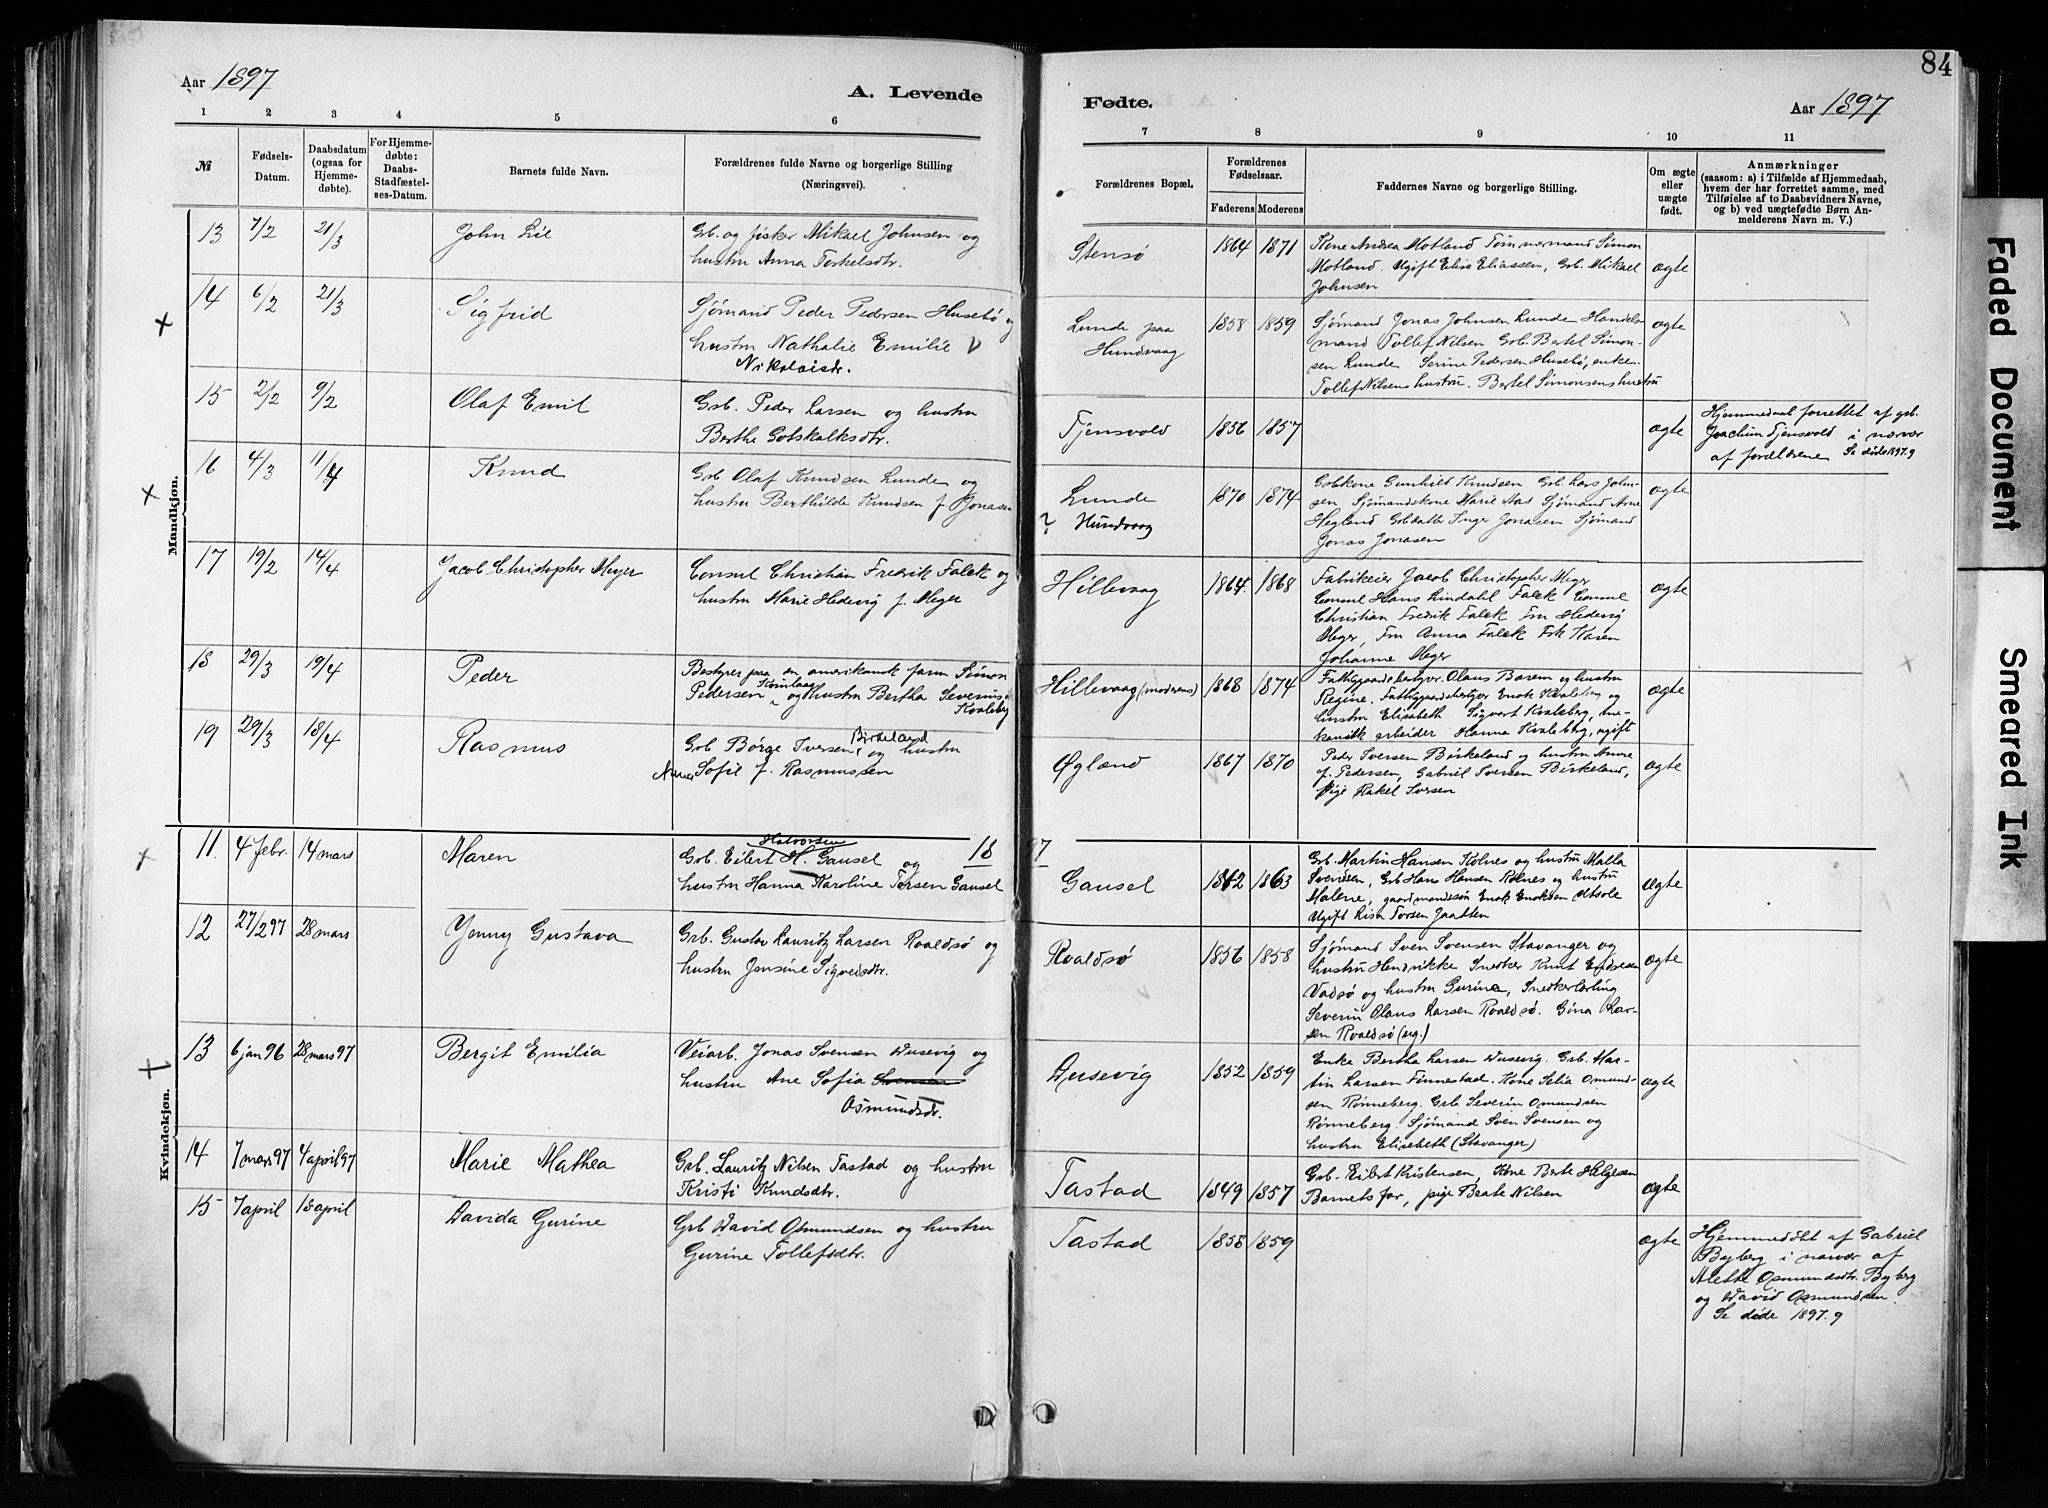 84
Aar 1897
A. Levende
Fødte.
Aar 1897
1 2 3 4 5 6
7 8 9 10 11
№
Fødsels-
Datum.
Daabsdatum
(ogsaa for
Hjemme-
døbte).
For Hjemme-
døbte:
Daabs-
Stadfæstel-
ses-Datum.
Barnets fulde Navn.
Forældrenes fulde Navne og borgerlige Stilling
(Næringsvei).
Forældrenes Bopæl.
Forældrenes
Fødselsaar.
Faderens Moderens
Faddernes Navne og borgerlige Stilling.
Om ægte
eller
uægte
født.
Anmærkninger
(saasom: a) i Tilfælde af Hjemmedaab,
hvem der har forrettet samme, med
Tilføielse af to Daabsvidners Navne,
og b) ved uægtefødte Børn An-
melderens Navn m. V.)
Mandkjøn.
13 7/2 21/3 John Lie
Grb. og fisker Mikael Johnsen og
hustru Anna Torkelsdtr.
Stensø 1864 1871
Kone Andrea Motland Tømmermand Simon
Motland. Ugift Elisa Eliassen, Grb. Mikael
Johnsen
ægte
14 6/2 21/3 Sigfrid
Sjømand Peder Pedersen Husebø og
hustru Nathalie Emilie
Nikolaisdr.
Lunde paa
Hundvaag
1858 1859
Sjømand Jonas Johnsen Lunde Handels-
mand Tollef Nilsen Grb. Batel Simon-
sen Lunde Serine Pedersen Husebø, enke.
Tollef Nilsens hustru. Bertel Simonsens hustru
ægte
15 2/2 9/2 Olaf Emil
Grb. Peder Larsen og hustru
Berthe Gotskalksdtr.
Tjensvold 1856 1857
ægte
Hjemmedaab forrettet af grb.
Joachim Tjensvold i nærvær
af forældrene Se døde 1897.9
16 4/3 11/4 Knud
Grb Olaf Knudsen Lunde og
hustru Berthilde Knudsen f. Jonasen
Lunde
? Hundvaag
1870 1874
Gbkone Gunhild Knudsen Grb. Lars John-
sen Sjømandskone Marie Aas Sjømand Arne
Hegland Grbdatter Inger Jonasen Sjømand
Jonas Jonasen
ægte
17 19/2 14/4 Jacob Christopher Meyer
Consul Christian Fredrik Falck og
hustru Marie Hedevig f. Meyer
Hillevaag 1864. 1868
Fabrikeier Jacob Christopher Meyer
Consul Hans Lindahl Falck Consul
Christian Fredrik Falck Fru Hedevig
Meyer, Fru Anna Falck Frk Karen
Johanne Meyer
ægte
18 29/3 19/4 Peder
Bestyrer paa en amerikansk farm Simon
Pedersen og hustru Bertha Severine
Kvaleberg
Hillevaag (moderens) 1868 1874
Fattiggaardsbestyrer Olaus Barem og hustru
Regine. Fattiggaardsbestyrer Enok Kvaleberg og
hustru Elisabeth Sigvart Kvaleberg, me-
kanisk arbeider Hanna Kvaleberg, ugift
ægte
19 29/3 18/4 Rasmus
Grb Børge Iversen Birkeland og hustru
Anna Sofie f. Rasmussen
Øgland 1867 1870
Peder Iversen Birkeland og hustru Anne
f. Pedersen, Gabriel Iversen Birkeland,
Pige Rakel Iversen
ægte
18 97
Kvindekjøn.
11. 4 febr. 14 mars Maren
Halvorsen
Grb. Eilert H. Gausel og
hustru Hanna Karoline Torsen Gausel
Gausel 1862 1863
Grb. Martin Hansen Kolnes og hustru Malla
Svendsen, Grb Hans Hansen Kolnes og hustru
Malene, gaardmandssøn Enok Enoksen Utsole
Ugift Lisa Torsen Jaatten
Ægte
12 27/2 97 28 mars Yenny Gustava
Grb. Gustav Lauritz Larsen Roaldsø og
hustru Jensine Sigveisdtr.
Roaldsø 1856 1858
Sjømand Sven Svensen Stavanger og
hustru Hendrikke Snedker Knut Endresen
Vadsø og hustru Gurine, Snedkerlærling
Severin Olaus Larsen Roaldsø. Gina Lar-
sen Roaldsø (ug.)
ægte
13 6 jan 96 28 mars 97 Bergit Emilia
Veiarb. Jonas Svensen Dusevig og
hustru Ane Sofia Svensen
Osmundsdr.
Dusevig 1852 1859
Enke Bertha Larsen Dusevig. Grb. Mar-
tin Larsen Finnestad. Kone Selia Omund-
sen Rønneberg. Grb Severin Omundsen
Rønneberg. Sjømand Sven Svensen og
hustru Elisebeth (Stavanger)
ægte
14 7 mars 97 4 april 97 Marie Mathea
Grb. Lauritz Nilsen Tastad og hustru
Kristi Knudsdtr.
Tastad 1849 1857
Grb. Eilert Kristensen, Kone Berte Helgesen
Barnets far, pige Beate Nilsen
ægte
15 7 april 18 april Davida Gurine
Grb David Osmundsen og hustru
Gurine Tollefsdtr.
Tastad 1858 1859
ægte
Hjemmedøbt af Gabriel
Byberg i nærvær af
Alette Osmundsdtr. Byberg
og David Osmundsen.
Se døde 1897.9
Faded Document
Smeared Ink